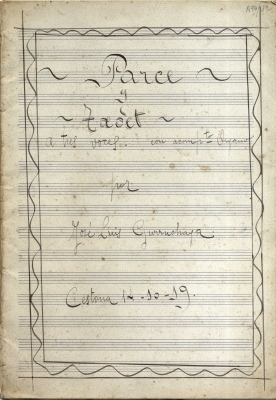 ~ Parce ~
y
~ Taöet ~
A tres voces. con acomp.to Organo
por
José Luis Gurruchaga
Cestona 14-10-19.